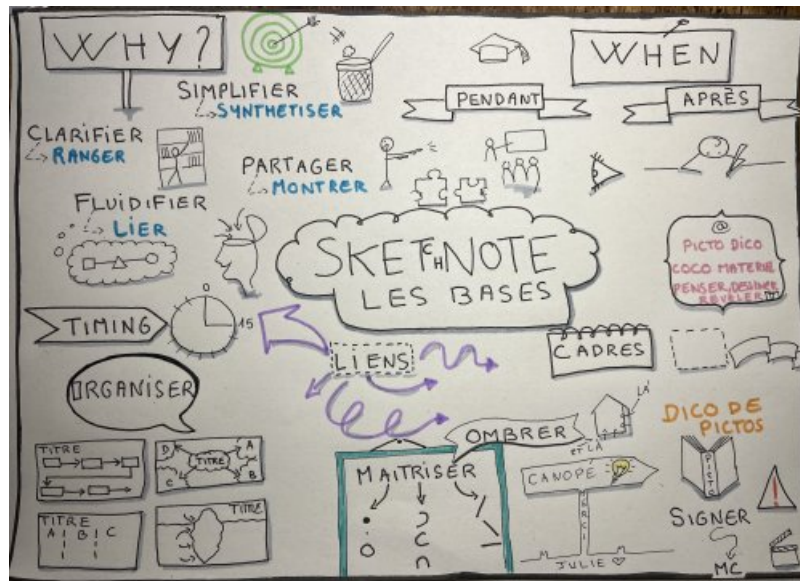 WHY?
SIMPLIFIER
SYNTHETISER
CLARIFIER
RANGER
PARTAGER
MONTRER
FLUIDIFIER
LIER
WHEN
PENDANT
APRÈS
SKETCHNOTE
LES BASES
@
PICTO DICO
COCO MATERIEL
PENSER, DESSINER
REVELER
TIMING
0
15
LIENS
CADRES
ORGANISER
TITRE
D
A
TITRE
C
B
TITRE
A B C
TITRE
MAITRISER
OMBRER
LÀ
et LÀ
DICO DE
PICTOS
PICTO
CANOPÉ
MERCI
JULIE
SIGNER
MC